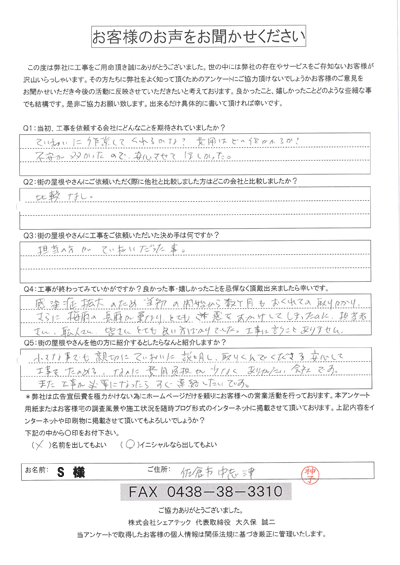 お客様のお声をお聞かせください
この度は弊社に工事をご用命頂き誠にありがとうございました。世の中には弊社の存在やサービスをご存知ないお客様が
沢山いらっしゃいます。その方たちに弊社をよく知って頂くためのアンケートにご協力頂けないでしょうかお客様のご意見を
お聞かせいただき今後の活動に反映させていただきたいと考えております。良かったこと、嬉しかったことどのような些細な事
でも結構です。是非ご協力お願い致します。出来るだけ具体的に書いて頂ければ幸いです。
Q1:当初、工事を依頼する会社にどんなことを期待されていましたか?
ていねいに作業してくれるかな? 費用はどの位かかるか?
不安が多かったので、安心させてほしかった。
Q2:街の屋根やさんにご依頼いただく際に他社と比較しました方はどこの会社と比較しましたか?
比較なし。
Q3:街の屋根やさんに工事をご依頼いただいた決め手は何ですか?
担当の方がていねいだった事。
Q4:工事が終わってみていかがですか?良かった事・嬉しかったことを忌憚なく頂戴出来ましたら幸いです。
感染症拡大のため当初の開始から数ヶ月もおくれての取りかかり、
さらに梅雨の長雨が重なり、とても
Q5:街の屋根やさんを他の方に紹介するとしたらなんと紹介しますか?
小さな事でも親切にていねいに説明し、取りくんでくださる安心して
また工事が必要になったらすぐ連絡したいです。
*弊社は広告宣伝費を極力かけない為にホームページだけを頼りにお客様への営業活動を行っております。本アンケート
用紙またはお客様宅の調査風景や施工状況を随時ブログ形式のインターネットに掲載させて頂いております。上記内容をイ
ンターネットや印刷物に掲載させて頂いてもよろしいでしょうか?
下記の中から〇印をお付下さい。
(✓)名前を出してもよい (〇)イニシャルなら出してもよい
お名前: S 様 ご住所: 佐倉市中志津
FAX 0438-38-3310
ご協力ありがとうございました。
株式会社シェアテック 代表取締役 大久保 誠二
当アンケートで取得したお客様の個人情報は関係法規に基づき厳正に管理いたします。